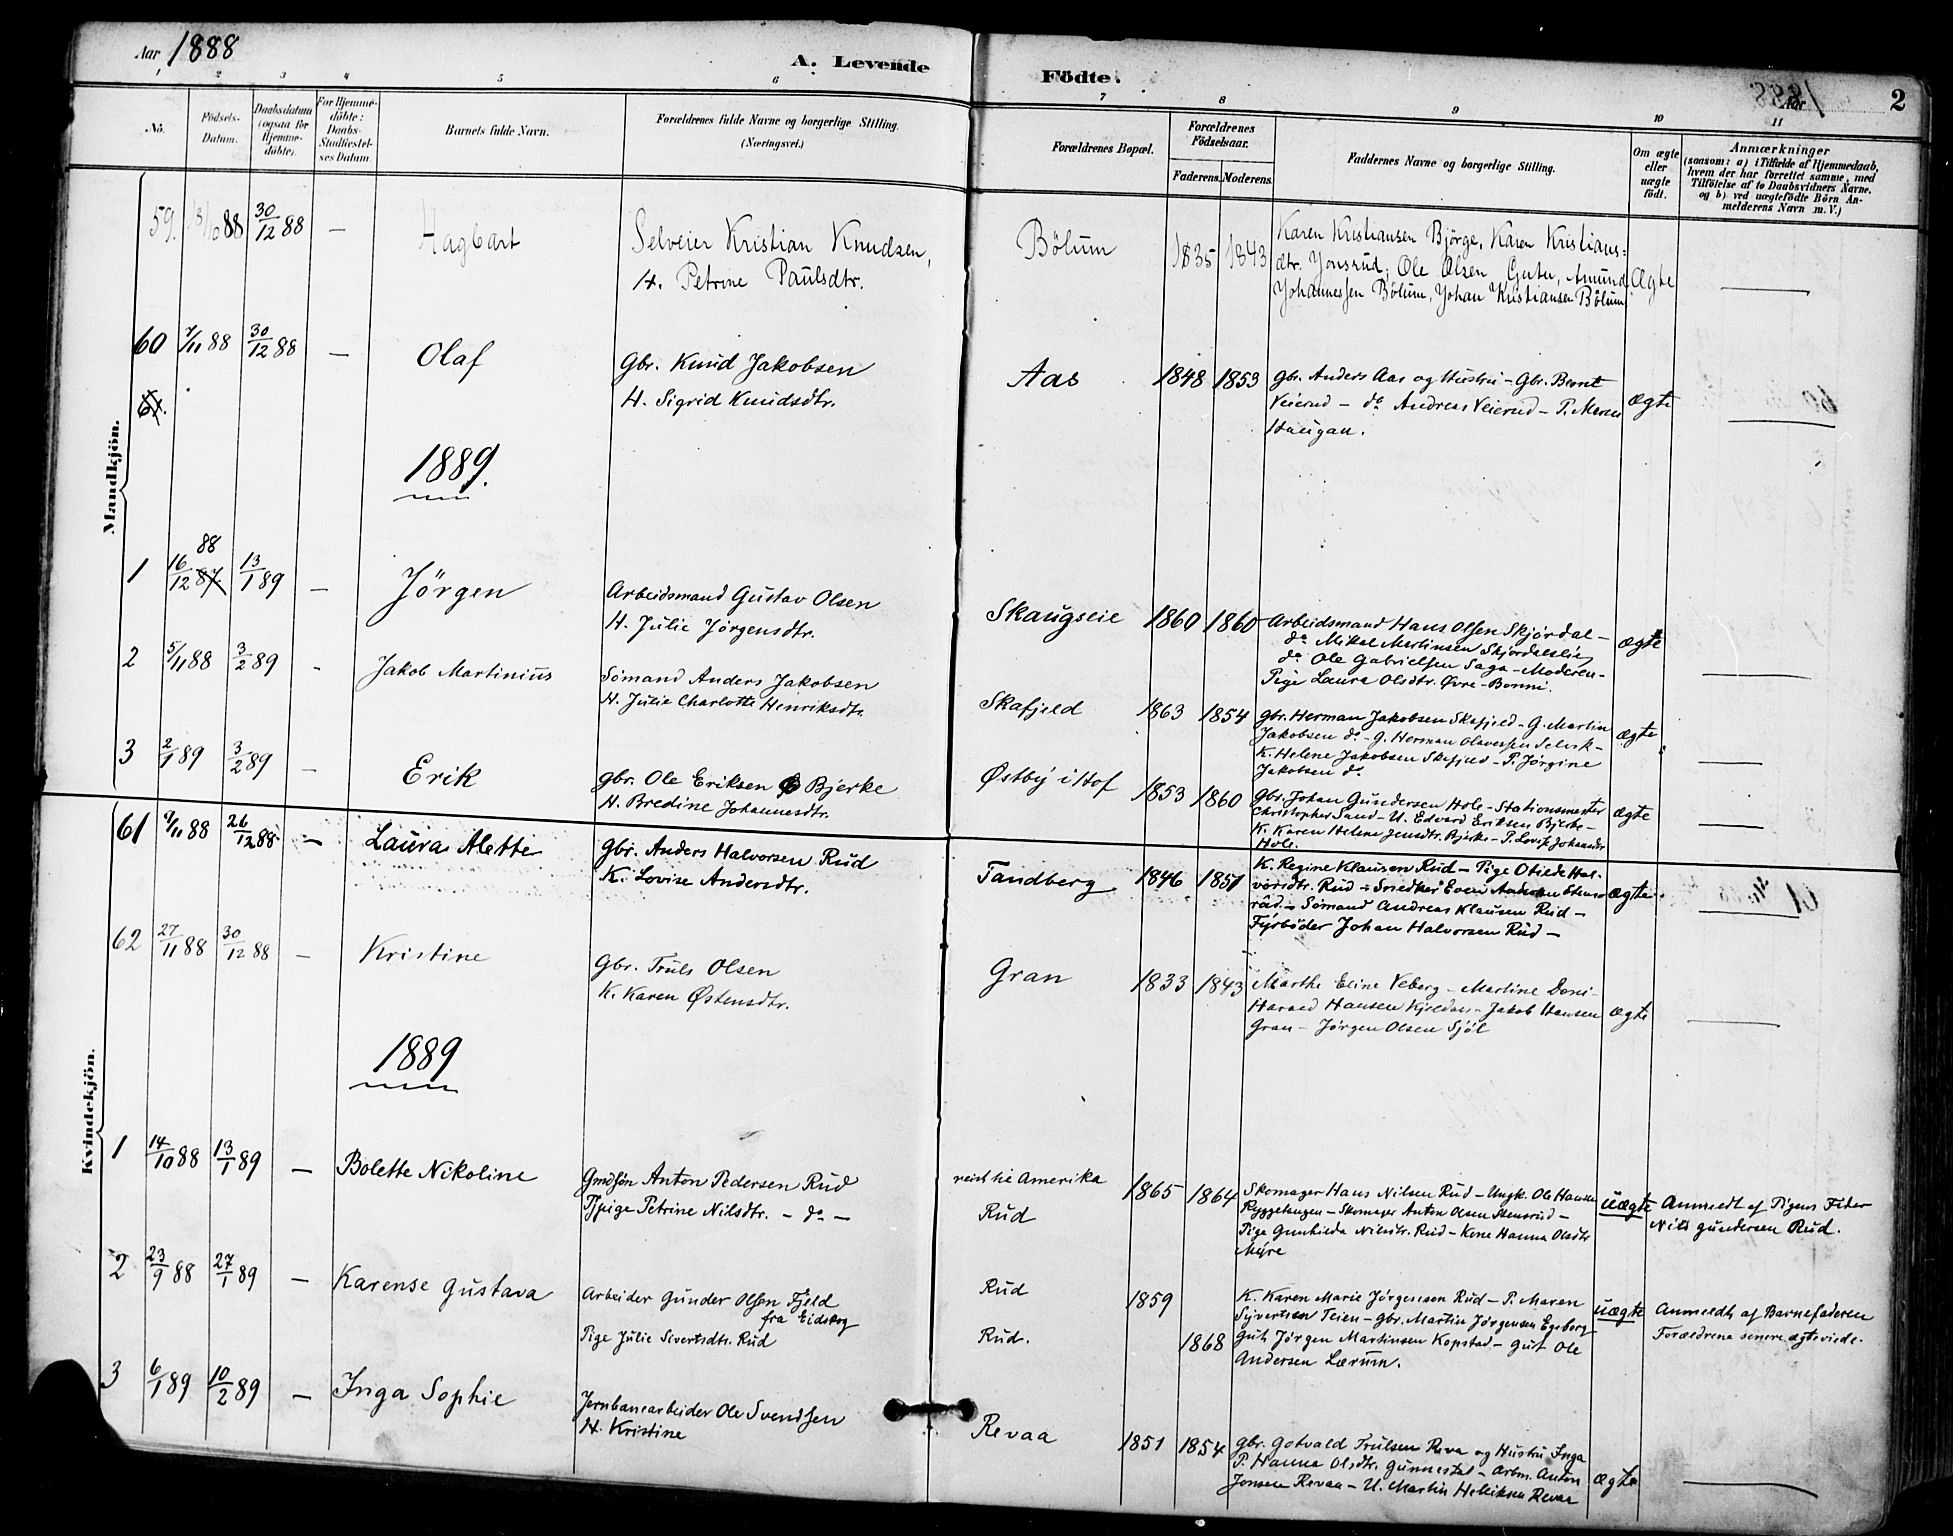 Aar 1888
A. Levende
Födte.
Aar
2
1 2 3 4 5 6 7 8 9 10 11
No.
Födsels-Datum.
Daabsdatum (ogsaa for Hjemmedöbte).
For Hjemmedöbte: Daabs-Stadfæstelses Datum.
Barnets fulde Navn.
Forældrenes fulde Navne og borgerlige Stilling. (Næringsvei.)
Forældrenes Bopæl.
Forældrenes Födselsaar.
Faderens. Moderens.
Faddernes Navne og borgerlige Stilling.
Om ægte eller uægte födt.
Anmærkninger
(saasom: a) i Tilfælde af Hjemmedaab,
hvem der har forrettet samme, med
Tilföielse af to Daabsvidners Navne,
og b) ved uægtefödte Börn An-
melderens Navn m. V.)
Mandkjön.
59. 88 30/12 88 — Hagbart
Selveier Kristian Knudsen,
H. Petrine Paulsdtr.
Bölum 1835 1843
Karen Kristiansen Björge, Karen Kristians-
dtr. Jonsrud, Ole Olsen Amund
Johannessen Bölum, Johan Kristiansen Bölum
Ægte —
60 7/11 88 30/12 88 — Olaf
Gbr. Knud Jakobsen
H. Sigrid Knudsdtr.
Aas 1848 1853
Gbr. Anders Aas og Hustru – Gbr. Bernt
Veierud – do Andreas Veierud – P. Maren
Haugan.
ægte —
61.
1889.
1 16/12 87. 88 13/1 89 — Jörgen
Arbeidsmand Gustav Olsen
H. Julie Jörgensdtr.
Skaugseie 1860 1860
Arbeidsmand Hans Olsen Skjørdal –
do Mikal Martinsen Skjørdalslie
do Ole Gabrielsen Saga – Moderen –
Pige Laura Olsdtr. Øvre-
ægte —
2 5/11 88 3/2 89 - Jakob Martinius
Sömand Anders Jakobsen
H. Julie Charlotte Henriksdtr.
Skafjeld 1863 1854
Gbr. Herman Jakobsen Skafjeld – G. Martin
Jakobsen do – G. Herman Olavesen Selvik –
K. Helene Jakobsen Skafjeld – P. Jörgine
Jakobsen do
ægte —
3 2/1 89 3/2 89 — Erik
Gbr. Ole Eriksen Bjerke
H. Bredine Johannesdtr.
Østby i Hof 1853 1860
Gbr. Johan Gundersen Hole – Stationsmester
Christopher Sand – U. Edvard Eriksen Bjerke –
K. Karen Helene Jensdtr. Bjerke – P. Lovise Johansdtr
Hole.
ægte —
Kvindekjön.
61 9/11 88 26/12 88 — Laura Alette
Gbr. Anders Halvorsen Rud
K. Lovise Andersdtr.
Tandberg 1846 1851
K. Regine Klausen Rud – Pige Otilde Hal-
vorsdtr. Rud – Snedker Even Andersen
– Sömand Andreas Klausen Rud –
Fyrböder Johan Halvorsen Rud –
ægte —
62 27/11 88 30/12 88 — Kristine
Gbr. Truls Olsen
K. Karen Østensdtr.
Gran 1833 1843
Marthe Eline Veberg – Martine
Harald Hansen Kjeldaas – Jakob Hansen
Gran – Jørgen Olsen Sjöl
ægte —
1889
1 14/10 88 13/1 89 — Bolette Nikoline
Gmdsön Anton Pedersen Rud
Tjpige Petrine Nilsdtr. – do –
reist til Amerika
Rud
1865 1864
Skomager Hans Nilsen Rud – Ungk. Ole Hansen
Ryggehaugen – Skomager Anton Olsen Stensrud –
Pige Gunhilda Nilsdtr. Rud – Kone Hanna Olsdtr
Myre
uægte
Anmeldt af Pigens Fader
Nils Gundersen Rud.
2 23/9 88 27/1 89 — Karense Gustava
Arbeider Gunder Olsen Fjeld
fra Eidsberg
Pige Julie Sivertsdtr. Rud
Rud
Rud.
1859
1868
K. Karen Marie Jørgensen Rud – P. Maren
Syvertsen Teien – Gbr. Martin Jørgensen Egeberg
Gut Jørgen Martinsen Kopstad – Gut Ole
Andersen Lærum.
uægte
Anmeldt af Barnefaderen
Forældrene senere ægteviede.
3 6/1 89 10/2 89 — Inga Sophie
Jernbanearbeider Ole Svendsen
H. Kristine
Revaa 1851 1854
Gbr. Gotvald Trulsen Reva og Hustru Inga
P. Hanna Olsdtr. Gunnestad – Arbm. Anton
Jonsen Revaa – U. Martin Helliksen Revaa
ægte —